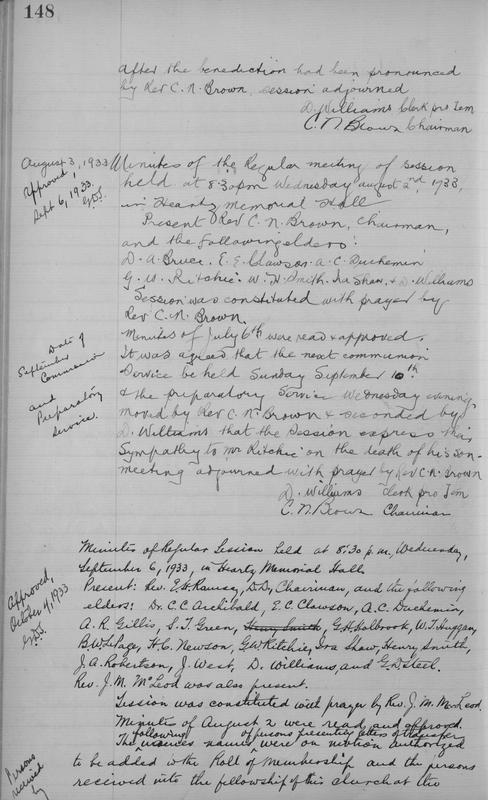 148
after the benediction had been pronounced
by Rev C. N. Brown session adjourned
D. Williams Clerk pro Tem
C. N Brown Chairman
August 3, 1933
Approved,
Sept 6, 1933.
Minutes of the Regular meeting of session
held at 8:30 pm Wednesday august 2nd, 1933,
in Heartz Memorial Hall
Present Rev C. N. Brown, Chairman,
and the following elders:
D. A. Bruce. E. E. Clawson. A. C. Duchemin
G. W. Ritchie. W. H. Smith. Ira Shaw, & D. Williams
Session was constituted with prayer by
Rev C. N. Brown.
Minutes of July 6th were read & approved.
Date of
September
Communion
and
Preparatory
Service.
It was agreed that the next communion
Service be held Sunday September 10th
& the preparatory Service Wednesday evening,
moved by Rev C. N. Brown & seconded by
D. Williams that the Session express their
Sympathy to Mr Ritchie on the death of his son -
meeting adjourned with prayer by Rev C. N. Brown
D. Williams Clerk pro Tem
C. N. Brown Chairman
Approved,
October 4, 1933
Minutes of Regular Session held at 8:30 p.m., Wednesday,
September 6, 1933, in Heartz Memorial Hall.
Present: Rev. E. H. Ramsay, D.D., Chairman, and the following
elders: Dr. C. C. Archibald, E. C. Clawson, A. C. Duchemin,
A. R. Gillis, S. T. Green, Henry Smith, G. H. Holbrook, W. T. Huggan,
B. W. LePage, H. C. Newson, G. W. Ritchie, Ira Shaw, Henry Smith,
J. A. Robertson, J. West, D. Williams, and G. D. Steel.
Rev. J. M. McLeod was also present.
Session was constituted with prayer by Rev. J. M. McLeod.
Minutes of August 2 were read and approved.
following of persons presenting letters of transfer
The names were on motion authorized
Persons
received
by
to be added to the Roll of Membership and the persons
received into the fellowship of this church at the